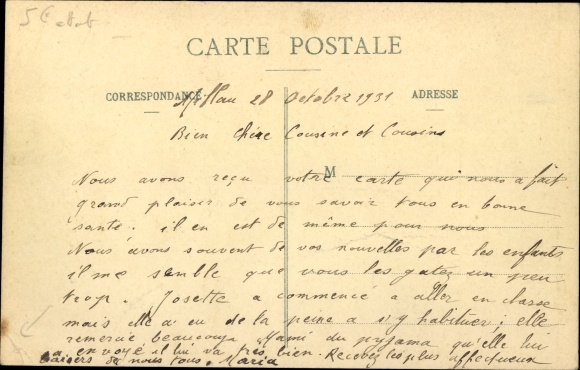 CARTE POSTALE
CORRESPONDANCE
ADRESSE
Millau 28 Octobre 1931
Bien Chère Cousine et Cousins
M
Nous avons reçu votre carte qui nous a fait
grand plaisir de vous savoir tous en bonne
santé. il en est de même pour nous
Nous avons souvent de vos nouvelles par les enfants
il me semble que vous les gatez un peu
trop. Josette a commencé a aller en classe
mais elle a eu de la peine a s'y habituer; elle
remercie beaucoup Mami du pyjama qu'elle lui
a envoyé il lui va très bien. Recevez les plus affectueux
baisers de nous tous. Maria